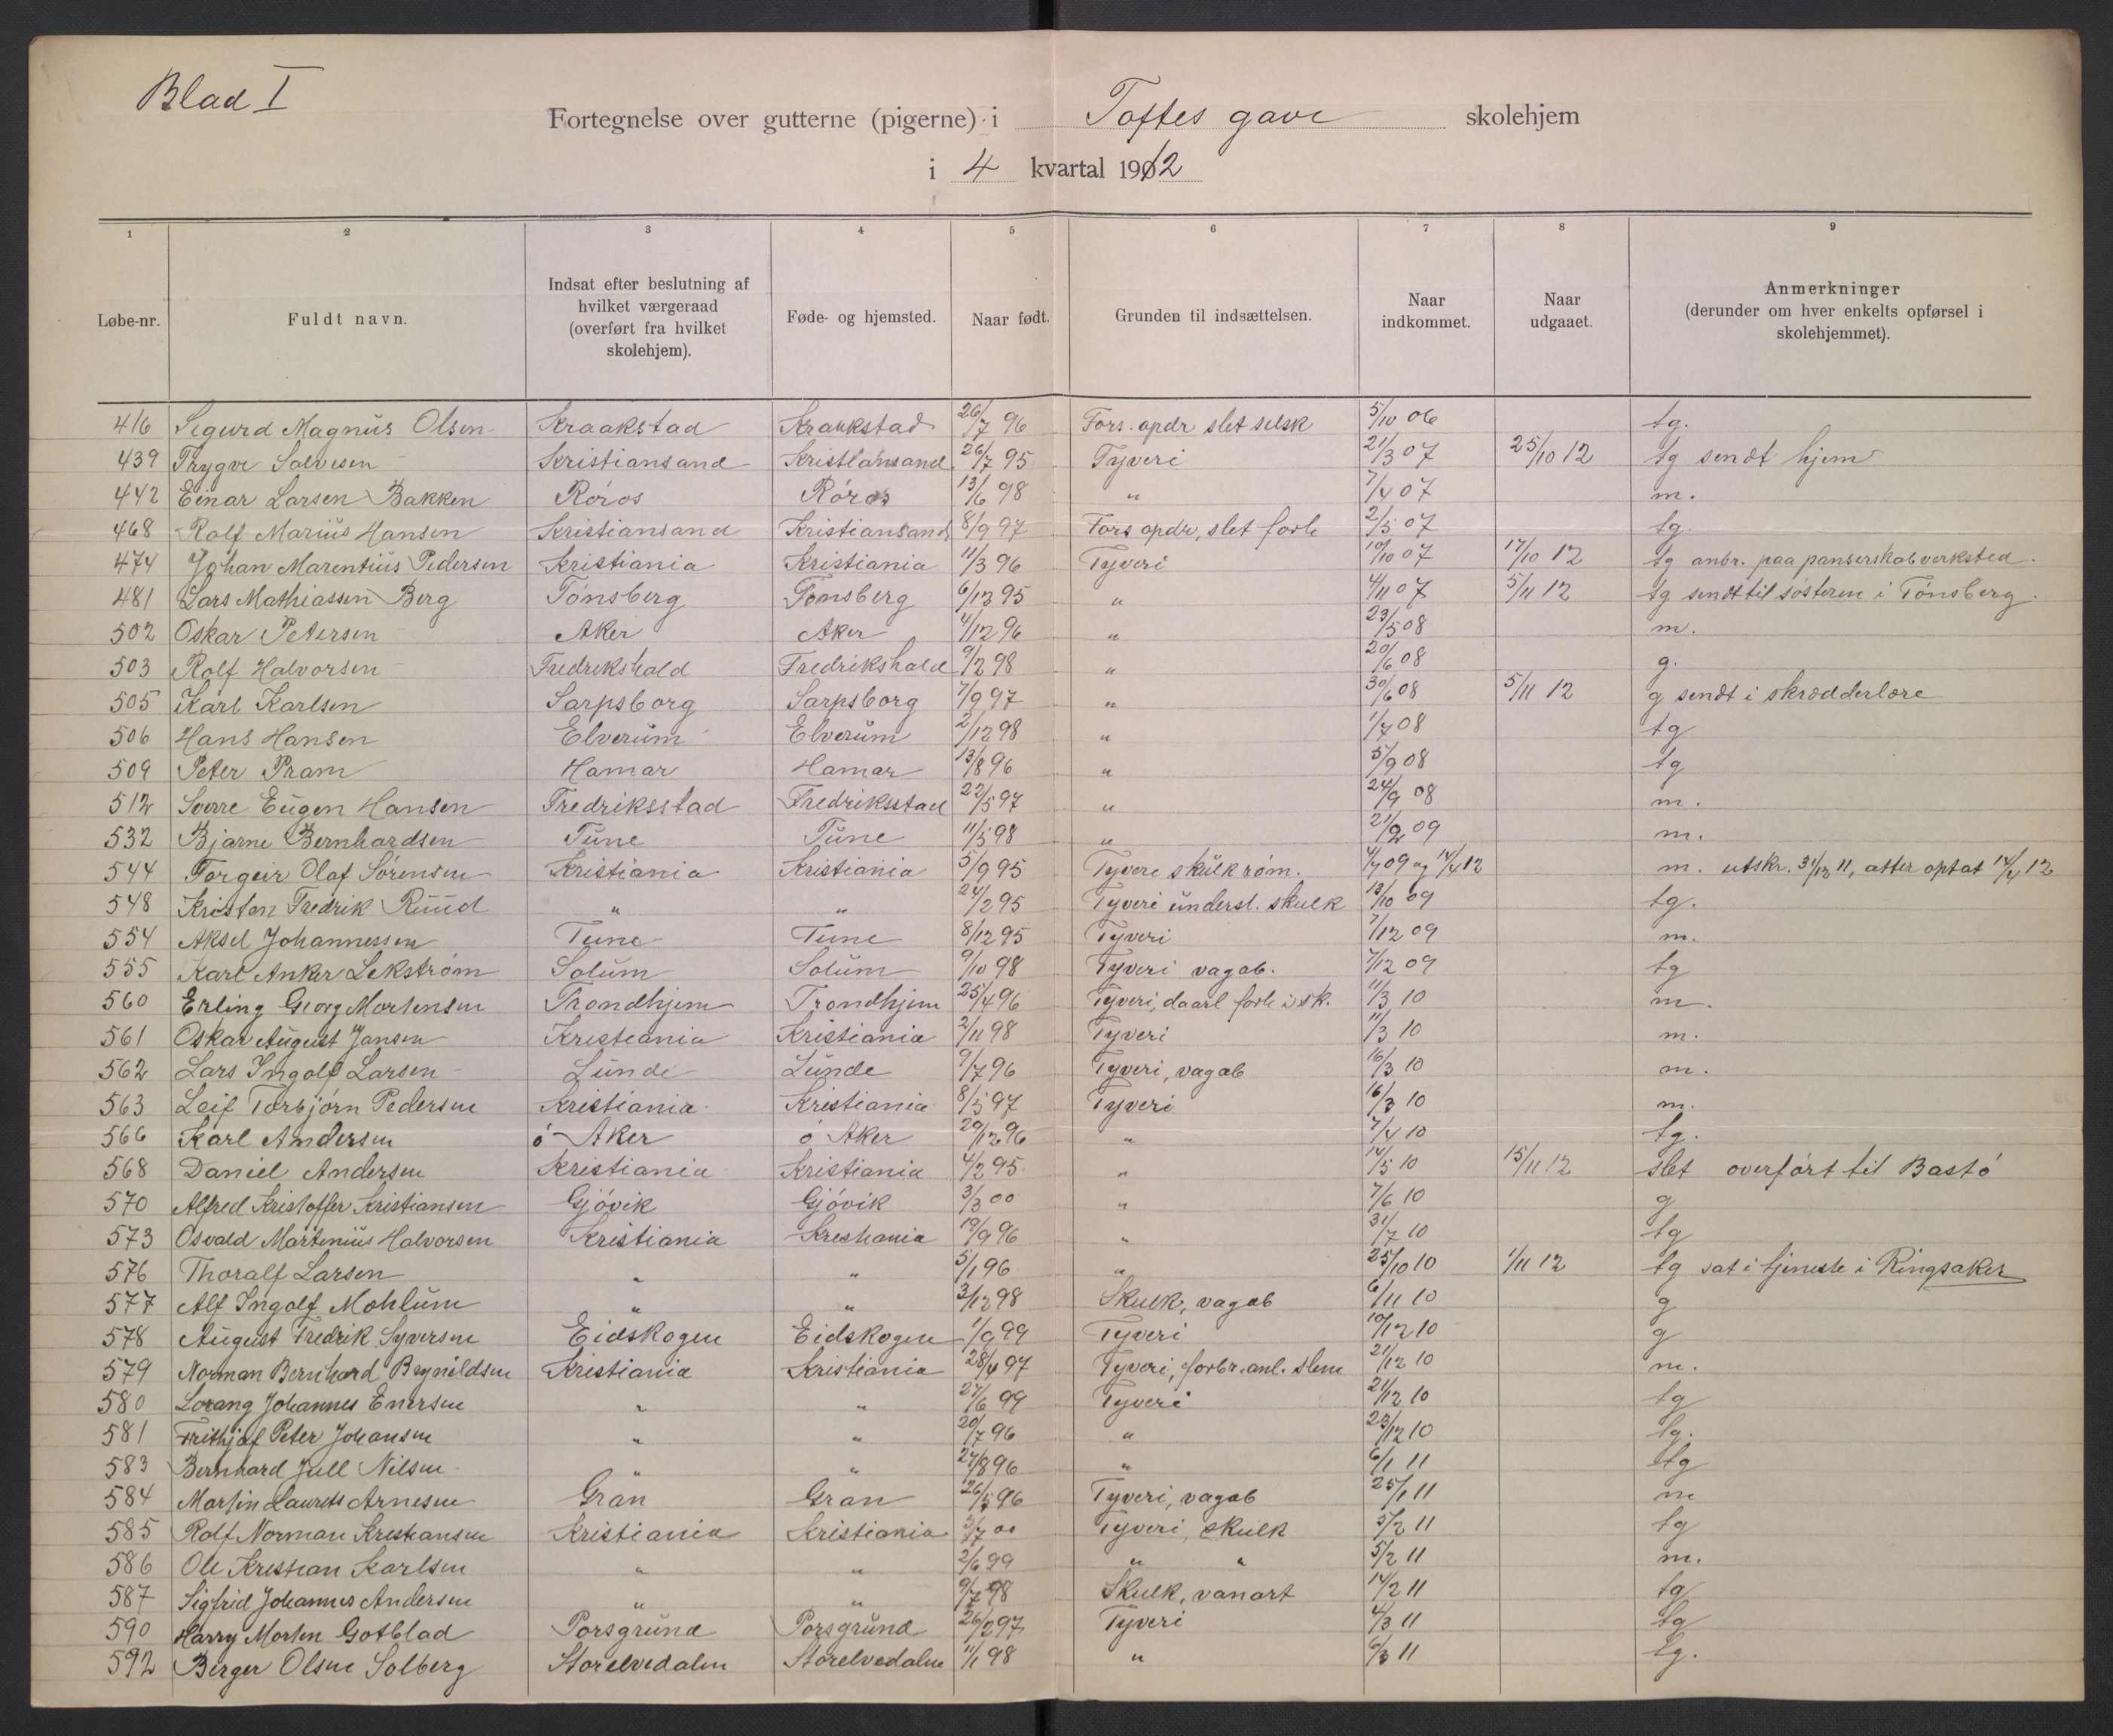 Blad I
Fortegnelse over gutterne (pigerne) i Toftes gave skolehjem
i 4 kvartal 1912
1 2 3 4 5 6 7 8 9
Løbe-nr. Fuldt navn. Indsat efter beslutning af hvilket værgeraad (overført fra hvilket skolehjem). Føde- og hjemsted. Naar født. Grunden til indsættelsen. Naar indkommet. Naar udgaaet. Anmerkninger (derunder om hver enkelts opførsel i skolehjemmet).
416 Sigurd Magnus Olsen Kraakstad Kraakstad 26/7 96 Fors. opdr slet selsk 5/10 06 tg.
439 Trygve Salvesen Kristiansand Kristiansand 26/7 95 Tyveri 21/3 07 25/10 12 tg sendt hjem
442 Einar Larsen Bakken Röros Röros 13/6 98 " 7/4 07 m.
468 Rolf Marius Hansen Kristiansand Kristiansand 8/9 97 Fors opdr, slet forh 2/5 07 tg.
474 Johan Marentius Pedersen Kristiania Kristiania 11/3 96 Tyveri 10/10 07 17/10 12 tg anbr. paa panserskabverksted.
481 Lars Mathiassen Berg Tönsberg Tönsberg 6/12 95 " 4/11 07 5/11 12 tg sendt til søsteren i Tönsberg.
502 Oskar Petersen Aker Aker 4/12 96 " 23/5 08 m.
503 Rolf Halvorsen Fredrikshald Fredrikshald 9/2 98 " 20/6 08 g.
505 Karl Karlsen Sarpsborg Sarpsborg 7/9 97 " 30/6 08 5/11 12 g sendt i skrædderlære
506 Hans Hansen Elverum Elverum 2/12 98 " 1/7 08 tg
509 Peter Pram Hamar Hamar 13/8 96 " 5/9 08 tg
512 Sverre Eugen Hansen Fredriksstad Fredriksstad 22/5 97 " 24/9 08 m.
532 Bjarne Bernhardsen Tune Tune 11/5 98 " 21/2 09 m.
544 Torgeir Olaf Sörensen Kristiania Kristiania 5/9 95 Tyveri skulk röm. 4/7 09 og 14/4 12 m. utskr. 31/12 11, atter optat 14/4 12
548 Kristen Fredrik Ruud " " 24/2 95 Tyveri underst. skulk 13/10 09 tg.
554 Aksel Johannessen Tune Tune 8/12 95 Tyveri 7/12 09 m.
555 Karl Anker Lekström Solum Solum 9/10 98 Tyveri vagab. 7/12 09 tg
560 Erling Georg Mortensen Trondhjem Trondhjem 25/4 96 Tyveri, daarl forh i sk. 11/3 10 m.
561 Oskar August Jansen Kristiania Kristiania 2/11 98 Tyveri 11/3 10 m.
562 Lars Ingolf Larsen Lunde Lunde 9/7 96 Tyveri, vagab 16/3 10 m.
563 Leif Torbjörn Pedersen Kristiania Kristiania 8/5 97 Tyveri 16/3 10 m.
566 Karl Andersen ö Aker ö Aker 29/12 96 " 7/4 10 tg.
568 Daniel Andersen Kristiania Kristiania 4/2 95 " 14/5 10 15/11 12 slet overført til Bastö
570 Alfred Kristoffer Kristiansen Gjövik Gjövik 3/3 00 " 7/6 10 g
573 Osvald Martinius Halvorsen Kristiania Kristiania 19/9 96 " 31/7 10 tg
576 Thoralf Larsen " " 5/1 96 " 25/10 10 1/11 12 tg sat i tjeneste i Ringsaker
577 Alf Ingolf Mohlum " " 2/12 98 Skulk, vagab 6/11 10 g
578 August Fredrik Syversen Eidskogen Eidskogen 1/9 99 Tyveri 10/12 10 g
579 Norman Bernhard Brynildsen Kristiania Kristiania 28/4 97 Tyveri, forbr. anl. slem 21/12 10 m.
580 Lorang Johannes Enersen " " 27/6 99 Tyveri 21/12 10 tg
581 Frithjof Peter Johansen " " 20/7 96 " 23/12 10 tg.
583 Bernhard Jull Nilsen " " 27/8 96 " 6/1 11 tg
584 Martin Laurits Arnesen Gran Gran 26/5 96 Tyveri, vagab 25/1 11 m
585 Rolf Norman Kristiansen Kristiania Kristiania 3/7 00 Tyveri, skulk 5/2 11 tg
586 Ole Kristian Karlsen " " 2/6 99 " " 5/2 11 m.
587 Sigfrid Johannes Andersen " " 9/7 98 Skulk, vanart 14/2 11 tg
590 Harry Morten Gotblad Porsgrund Porsgrund 26/2 97 Tyveri 4/3 11 tg
592 Birger Olsen Solberg Storelvedalen Storelvedalen 11/1 98 " 6/3 11 tg.